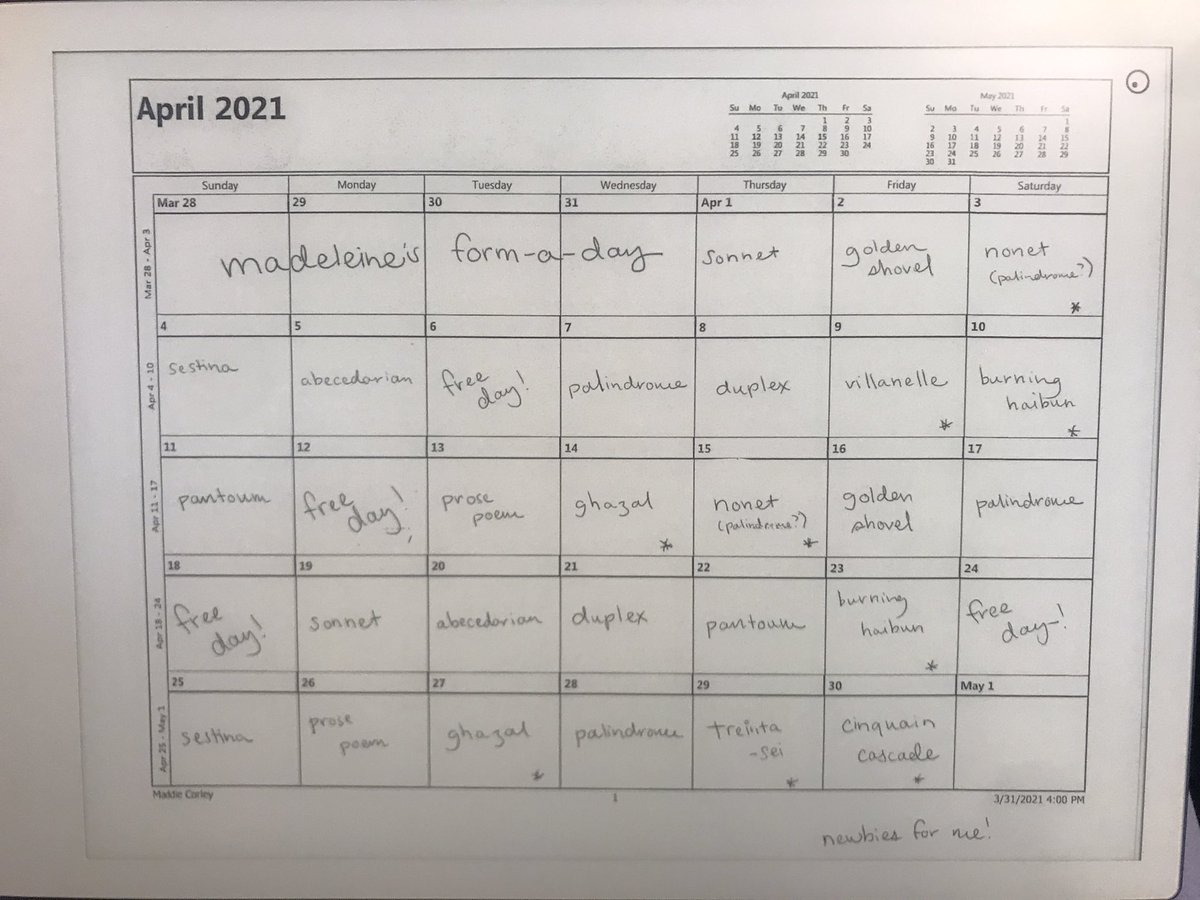 April 2021
April 2021
Su Mo Tu We Th Fr Sa
1 2 3
4 5 6 7 8 9 10
11 12 13 14 15 16 17
18 19 20 21 22 23 24
25 26 27 28 29 30
May 2021
Su Mo Tu We Th Fr Sa
1
2 3 4 5 6 7 8
9 10 11 12 13 14 15
16 17 18 19 20 21 22
23 24 25 26 27 28 29
30 31
Sunday Monday Tuesday Wednesday Thursday Friday Saturday
Mar 28 - Apr 3
Mar 28 29 30 31 Apr 1 2 3
madeleine's form-a-day
sonnet
golden
shovel
nonet
(palindrome?)
*
Apr 4 - 10
4 5 6 7 8 9 10
sestina
abecedarian
free
day!
palindrome
duplex
villanelle
*
burning
haibun
*
Apr 11 - 17
11 12 13 14 15 16 17
pantoum
free
day!
prose
poem
ghazal
*
nonet
(palindrome?)
*
golden
shovel
palindrome
Apr 18 - 24
18 19 20 21 22 23 24
free
day!
sonnet
abecedarian
duplex
pantoum
burning
haibun
*
free
day!
Apr 25 - May 1
25 26 27 28 29 30 May 1
sestina
prose
poem
ghazal
*
palindrome
treinta
-sei
*
cinquain
cascade
*
Maddie Corley 1 3/31/2021 4:00 PM
newbies for me!